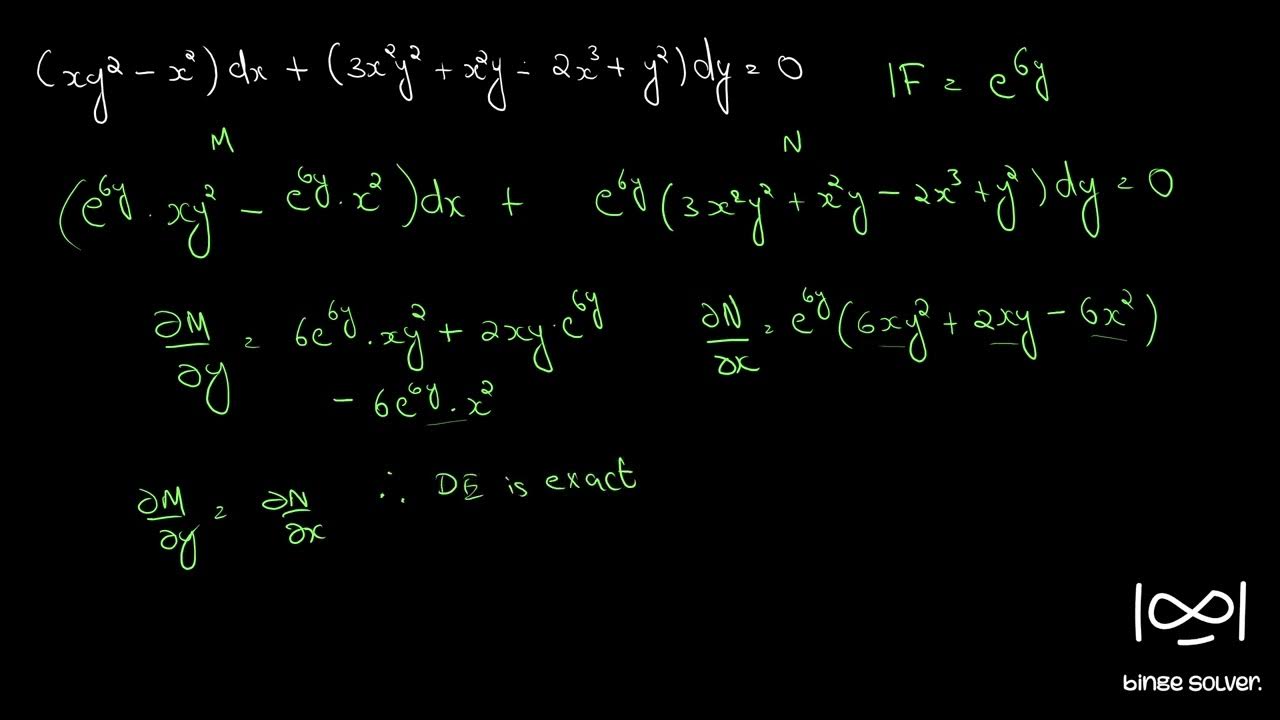 (xy² - x²) dx + (3x²y² + x²y - 2x³ + y²) dy = 0
IF = e^{6y}
M
N
(e^{6y} · xy² - e^{6y} · x²) dx + e^{6y} (3x²y² + x²y - 2x³ + y²) dy = 0
∂M/∂y = 6e^{6y} · xy² + 2xy · e^{6y}
- 6e^{6y} · x²
∂N/∂x = e^{6y} (6xy² + 2xy - 6x²)
∂M/∂y = ∂N/∂x ∴ DE is exact
binge solver.